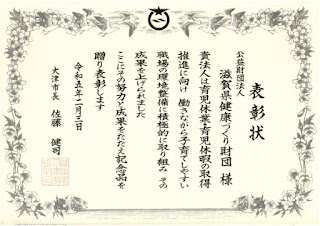 表彰状
公益財団法人
滋賀県健康づくり財団 様
貴法人は育児休業・育児休暇の取得
推進に向け 働きながら子育てしやすい
職場の環境整備に積極的に取り組み その
成果を上げられました
ここにその努力と成果をたたえ記念品を
贈り表彰します
令和五年二月三日
大津市長 佐藤 健司